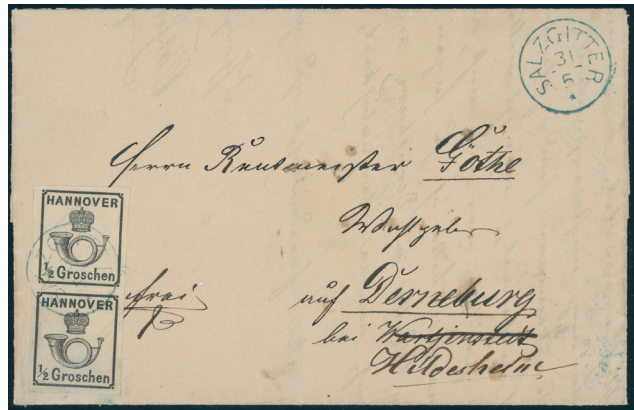 SALZGITTER
31
5
*
Herrn Rentmeister Göthe
Wohlgeb
HANNOVER
½ Groschen
HANNOVER
½ Groschen
frei
auf Derneburg
bei
Hildesheim